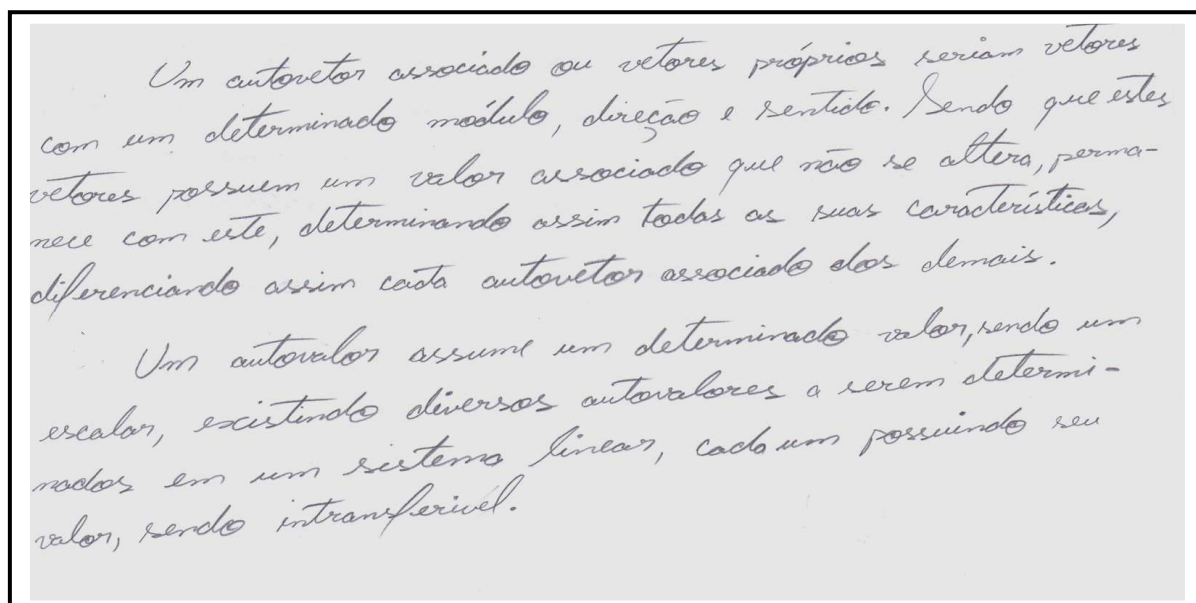 Um autovetor associado ou vetores próprios seriam vetores
com um determinado módulo, direção e sentido. Sendo que estes
vetores possuem um valor associado que não se altera, perma-
nece com este, determinando assim todas as suas características,
diferenciando assim cada autovetor associado dos demais.
Um autovalor assume um determinado valor, sendo um
escalar, existindo diversos autovalores a serem determi-
nados em um sistema linear, cada um possuindo seu
valor, sendo intransferivel.